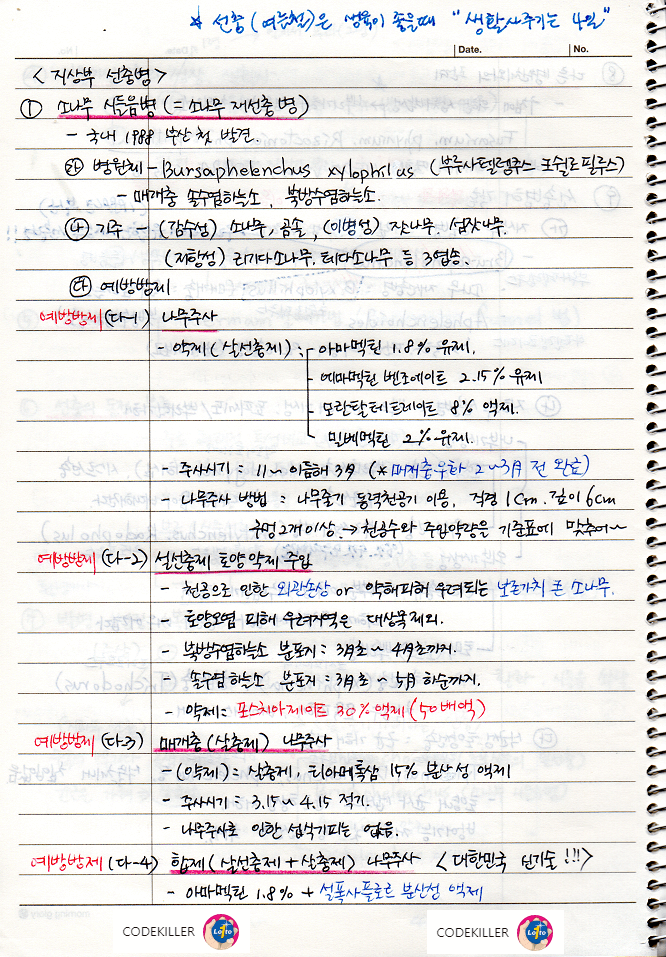 * 선충(여름철)은 생육이 좋을때 "생활사주기는 4일"
Date. No.
<지상부 선충병>
① 소나무 시들음병 (= 소나무 재선충병)
- 국내 1988 부산 첫 발견.
㉮ 병원체 - Bursaphelenchus xylophilus (부루사펠렝쿠스 크쉴로필루스)
- 매개충 솔수염하늘소, 북방수염하늘소.
㉯ 기주 - (감수성) 소나무, 곰솔, (이병성) 잣나무, 섬잣나무.
(저항성) 리기다소나무, 테다소나무 등 3엽송.
㉰ 예방방제
예방방제 (다-1) 나무주사
- 약제(살선충제) : - 아바멕틴 1.8% 유제.
- 에마멕틴 벤조에이트 2.15% 유제
- 모란탈테트레이트 8% 액제.
- 밀베멕틴 2% 유제.
- 주사시기 = 11 ~ 이듬해 3月 (*매개충우화 2~3月 전 완료)
- 나무주사 방법 = 나무줄기 동력천공기 이용, 직경 1cm. 깊이 6cm
구멍 2개 이상. → 천공수와 주입약량을 기준표에 맞추어~
예방방제 (다-2) 살선충제 토양약제 주입
- 천공으로 인한 외관손상 or 약해피해 우려되는 보존가치 큰 소나무.
- 토양오염 피해 우려지역은 대상목 제외.
- 북방수염하늘소 분포지 = 3月초 ~ 4月초까지.
- 솔수염하늘소 분포지 = 3月초 ~ 5月 하순까지.
- 약제 = 포스치아제이트 30% 액제 (50배액)
예방방제 (다-3) 매개충(살충제) 나무주사
- (약제) = 살충제, 티아메톡삼 15% 분산성 액제
- 주사시기 = 3.15 ~ 4.15 적기.
- 나무주사로 인한 섭식기피는 없음.
예방방제 (다-4) 합제(살선충제 + 살충제) 나무주사 <대한민국 신기술!!!>
- 아바멕틴 1.8% + 설폭사플로르 분산성 액제
CODEKILLER Lotto CODEKILLER Lotto